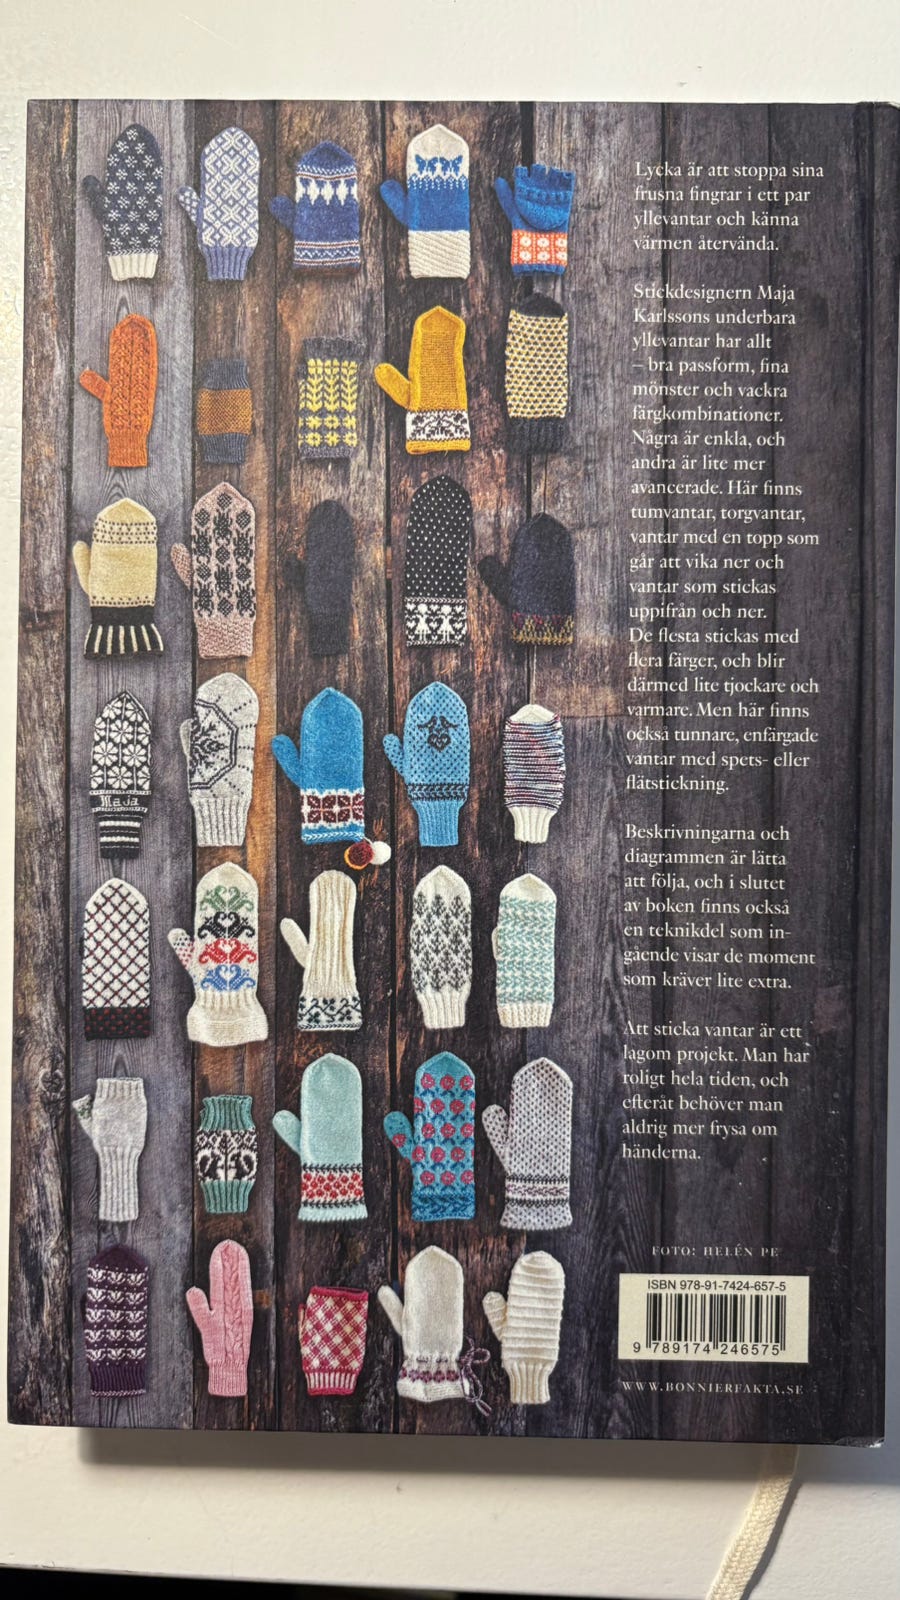 Lycka är att stoppa sina
frusna fingrar i ett par
yllevantar och känna
värmen återvända.
Stickdesignern Maja
Karlssons underbara
yllevantar har allt
– bra passform, fina
mönster och vackra
färgkombinationer.
Några är enkla, och
andra är lite mer
avancerade. Här finns
tumvantar, torgvantar,
vantar med en topp som
går att vika ner och
vantar som stickas
uppifrån och ner.
De flesta stickas med
flera färger, och blir
därmed lite tjockare och
varmare. Men här finns
också tunnare, enfärgade
vantar med spets- eller
flätstickning.
Maja
Beskrivningarna och
diagrammen är lätta
att följa, och i slutet
av boken finns också
en teknikdel som in-
gående visar de moment
som kräver lite extra.
Att sticka vantar är ett
lagom projekt. Man har
roligt hela tiden, och
efteråt behöver man
aldrig mer frysa om
händerna.
FOTO: HELÉN PE
ISBN 978-91-7424-657-5
9 789174 246575
WWW.BONNIERFAKTA.SE